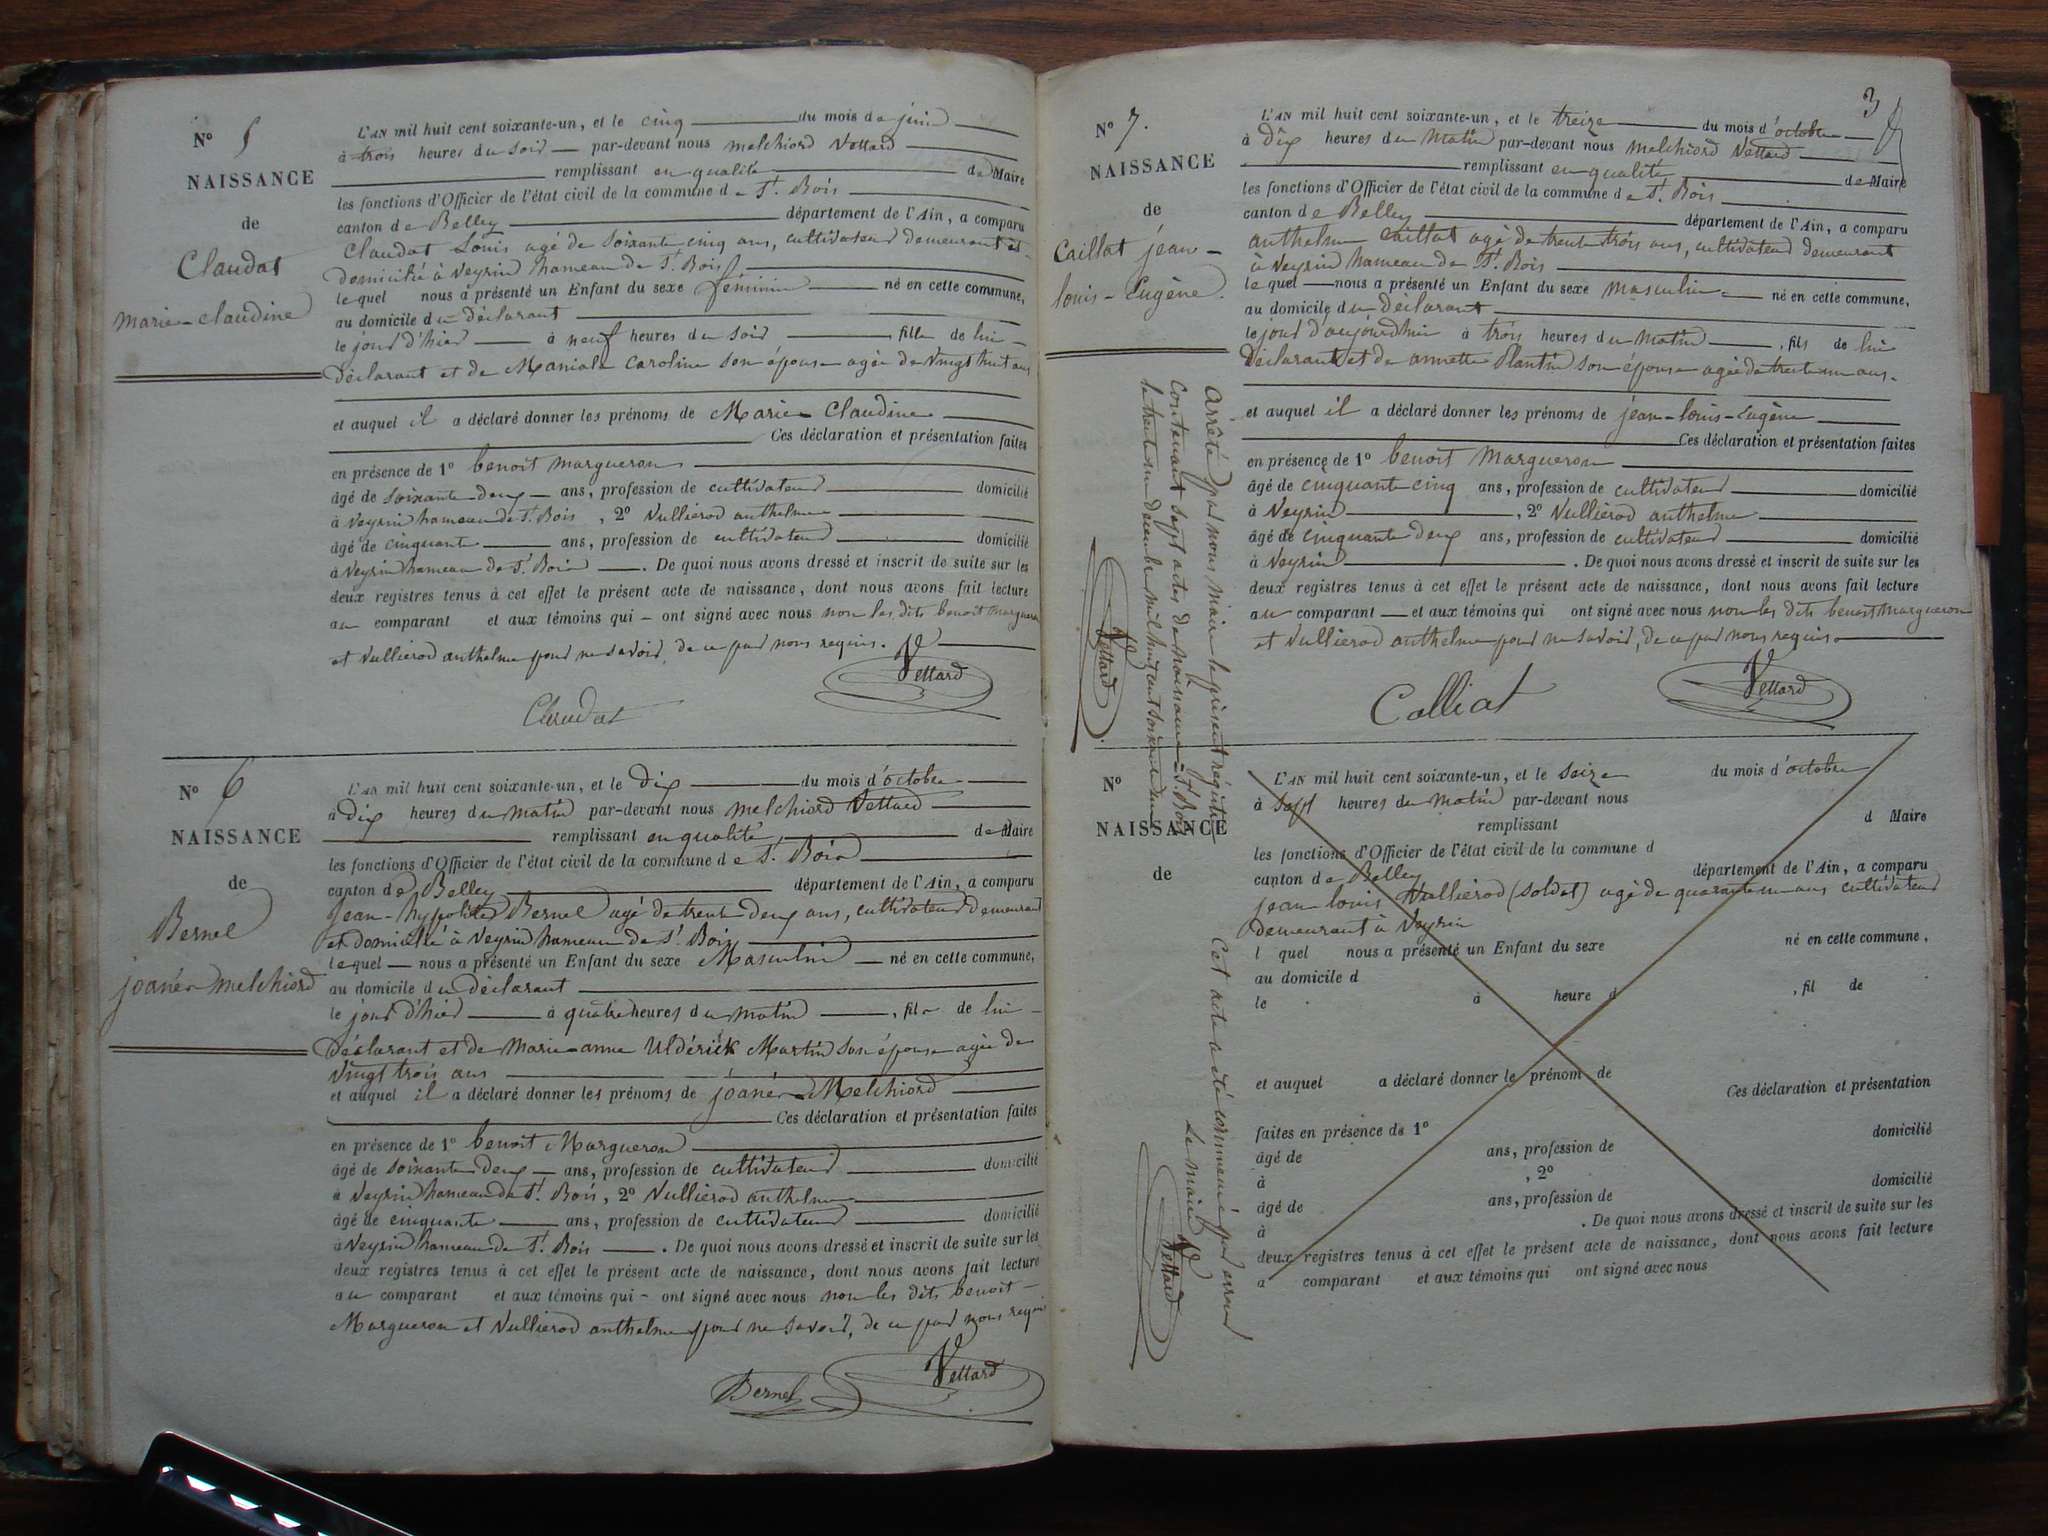 N° 5
NAISSANCE
de
Claudat
marie-claudine
L'AN mil huit cent soixante-un, et le cinq du mois de juin
à trois heures du soir par-devant nous melchiord Vettard
remplissant en qualité de Maire
les fonctions d'Officier de l'état civil de la commune de St. Bois
canton de Belley département de l'Ain, a comparu
Claudat Louis agé de soixante cinq ans, cultivateur demeurant et
domicilié à Veyrin hameau de St. Bois
lequel nous a présenté un Enfant du sexe féminin né en cette commune,
au domicile du déclarant
le jour d'hier à neuf heures du soir fille de lui
déclarant et de Maniola Caroline son épouse agée de vingt huit ans
et auquel il a déclaré donner les prénoms de Marie Claudine
Ces déclaration et présentation faites
en présence de 1° benoit margueron
âgé de soixante deux ans, profession de cultivateur domicilié
à Veyrin hameau de St. Bois, 2° Vullierod anthelme
âgé de cinquante ans, profession de cultivateur domicilié
à Veyrin hameau de St. Bois. De quoi nous avons dressé et inscrit de suite sur les
deux registres tenus à cet effet le présent acte de naissance, dont nous avons fait lecture
au comparant et aux témoins qui ont signé avec nous non les dits benoit margueron
et Vullierod anthelme pour ne savoir, de ce par nous requis.
Vettard
Claudat
N° 6
NAISSANCE
de
Bernel
joanér melchiord
L'AN mil huit cent soixante-un, et le dix du mois d'octobre
à dix heures du matin par-devant nous melchiord Vettard
remplissant en qualité de Maire
les fonctions d'Officier de l'état civil de la commune de St. Bois
canton de Belley département de l'Ain, a comparu
Jean-hypolite Bernel agé de trente deux ans, cultivateur demeurant
et domicilié à Veyrin hameau de St. Bois
lequel nous a présenté un Enfant du sexe Masculin né en cette commune,
au domicile du déclarant
le jour d'hier à quatre heures du matin, fils de lui
déclarant et de Marie-anne Uldérick Martin son épouse agée de
vingt trois ans
et auquel il a déclaré donner les prénoms de joanér Melchiord
Ces déclaration et présentation faites
en présence de 1° benoit Margueron
âgé de soixante deux ans, profession de cultivateur domicilié
à Veyrin hameau de St. Bois, 2° Vullierod anthelme
âgé de cinquante ans, profession de cultivateur domicilié
à Veyrin hameau de St. Bois. De quoi nous avons dressé et inscrit de suite sur les
deux registres tenus à cet effet le présent acte de naissance, dont nous avons fait lecture
au comparant et aux témoins qui ont signé avec nous non les dits benoit
Margueron et Vullierod anthelme pour ne savoir, de ce par nous requis
Vettard
Bernel
3
N° 7.
NAISSANCE
de
Caillat jean-
louis-Eugène
L'AN mil huit cent soixante-un, et le treize du mois d'octobre
à dix heures du matin par-devant nous melchiord Vettard
remplissant en qualité de Maire
les fonctions d'Officier de l'état civil de la commune de St. Bois
canton de Belley département de l'Ain, a comparu
anthelme caillat agé de trente trois ans, cultivateur demeurant
à Veyrin hameau de St. Bois
lequel nous a présenté un Enfant du sexe masculin né en cette commune,
au domicile du déclarant
le jour d'aujourd'hui à trois heures du matin, fils de lui
déclarant et de annette Plantin son épouse agée de trente un ans.
et auquel il a déclaré donner les prénoms de jean-louis-Eugène
Ces déclaration et présentation faites
en présence de 1° benoit Margueron
âgé de cinquante cinq ans, profession de cultivateur domicilié
à Veyrin, 2° Vullierod anthelme
âgé de cinquante deux ans, profession de cultivateur domicilié
à Veyrin. De quoi nous avons dressé et inscrit de suite sur les
deux registres tenus à cet effet le présent acte de naissance, dont nous avons fait lecture
au comparant et aux témoins qui ont signé avec nous non les dits benoit margueron
et Vullierod anthelme pour ne savoir, de ce par nous requis.
Vettard
Calliat
Arrêté par nous maire le présent régistre
contenant sept actes de naissance à St. Bois
le trente un décembre mil huit cent soixante un
Vettard
N°
NAISSANCE
de
L'AN mil huit cent soixante-un, et le seize du mois d'octobre
à sept heures du matin par-devant nous
remplissant d Maire
les fonctions d'Officier de l'état civil de la commune d
canton de Belley département de l'Ain, a comparu
jean louis Vullierod (soldat) agé de quarante un ans cultivateur
demeurant à Veyrin
l quel nous a présenté un Enfant du sexe né en cette commune,
au domicile d
le à heure d , fil de
et auquel a déclaré donner le prénom de
Ces déclaration et présentation
faites en présence de 1°
âgé de ans, profession de domicilié
à , 2°
âgé de ans, profession de domicilié
à . De quoi nous avons dressé et inscrit de suite sur les
deux registres tenus à cet effet le présent acte de naissance, dont nous avons fait lecture
a comparant et aux témoins qui ont signé avec nous
Cet acte a été commencé par erreur
Le maire
Vettard